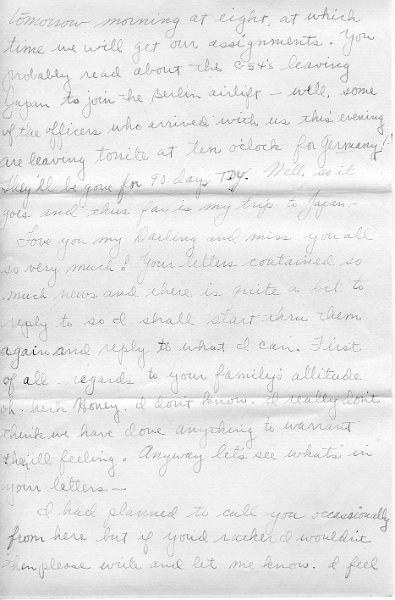 tomorrow morning at eight, at which
time we will get our assignments. You
probably read about the C54's leaving
Japan to join the Berlin airlift - well, some
of the officers who arrived with us this evening
are leaving tonite at ten oclock for Germany!!
They'll be gone for 90 days TDY. Well, so it
goes and thus far is my trip to Japan -
Love you my Darling and miss you all
so very much! Your letters contained so
much news and there is quite a bit to
reply to so I shall start thru them
again and reply to what I can. First
of all - regards to your family's attitude
oh heck Honey. I don't know. I really don't
think we have done anything to warrant
the ill feeling. Anyway let's see what's in
your letters -
I had planned to call you occassionally
from here but if you'd rather I wouldn't
then please write and let me know. I feel